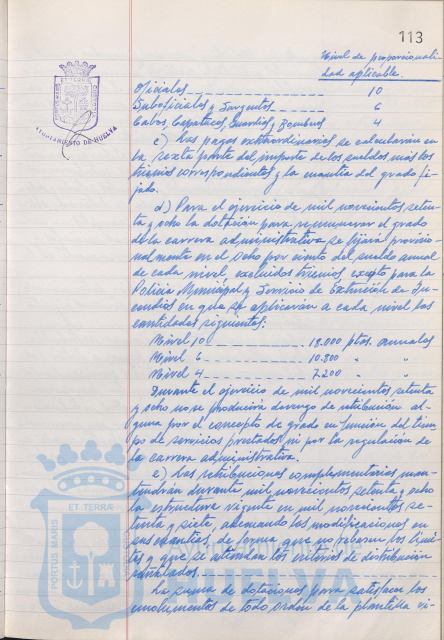 113
Nivel de proporcionali-
dad aplicable.
Oficiales 10
Suboficiales y Sargentos 6
Cabos, Capataces, Guardias y Bomberos 4
c) Las pagas extraordinarias se calcularán en
la sexta parte del importe de los sueldos más los
trienios correspondientes y la cuantía del grado fi-
jado.
d) Para el ejercicio de mil novecientos seten-
ta y ocho la dotación para remunerar el grado
de la carrera administrativa se fijará provisio-
nalmente en el ocho por ciento del sueldo anual
de cada nivel, excluidos trienios, excepto para la
Policía Municipal y Servicio de Extinción de In-
cendios en que se aplicarán a cada nivel las
cantidades siguientes:
Nivel 10 18.000 ptas. anuales
Nivel 6 10.800 " "
Nivel 4 7.200 " "
Durante el ejercicio de mil novecientos setenta
y ocho no se producirá devengo de retribución al-
guna por el concepto de grado en función del tiem-
po de servicios prestados ni por la regulación de
la carrera administrativa.
e) Las retribuciones complementarias man-
tendrán durante mil novecientos setenta y ocho
la estructura vigente en mil novecientos se-
tenta y siete, adecuando las modificaciones en
sus cuantías, de forma que no rebasen los lími-
tes y que se atiendan los criterios de distribución
señalados.
La suma de dotaciones para satisfacer los
emolumentos de todo orden de la plantilla vi-
AYUNTAMIENTO DE HUELVA
PORTUS MARIS
ET TERRAE
HUELVA